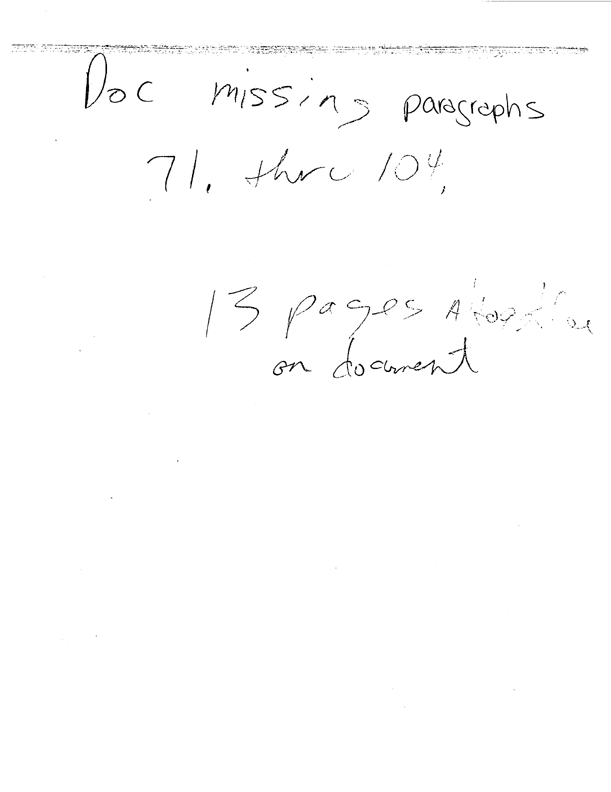 Doc missing paragraphs
71. thru 104.
13 pages
on document